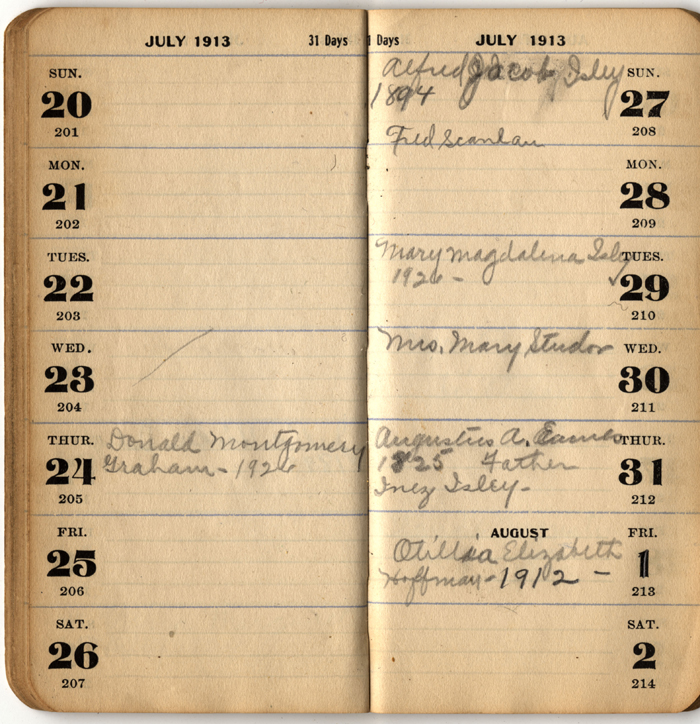 JULY 1913 31 Days
SUN.
20
201
MON.
21
202
TUES.
22
203
WED.
23
204
THUR.
24
205
Donald Montgomery
Graham - 192
FRI.
25
206
SAT.
26
207
Days JULY 1913
Alfred Jacob Isley
1894
Fred Scanlan
SUN.
27
208
MON.
28
209
Mary Magdalena Isley
192 -
TUES.
29
210
Mrs. Mary Studor
WED.
30
211
Augustus A. Eames
1825 Father
Inez Isley -
THUR.
31
212
AUGUST
Otillia Elizabeth
Hoffman - 1912 -
FRI.
1
213
SAT.
2
214